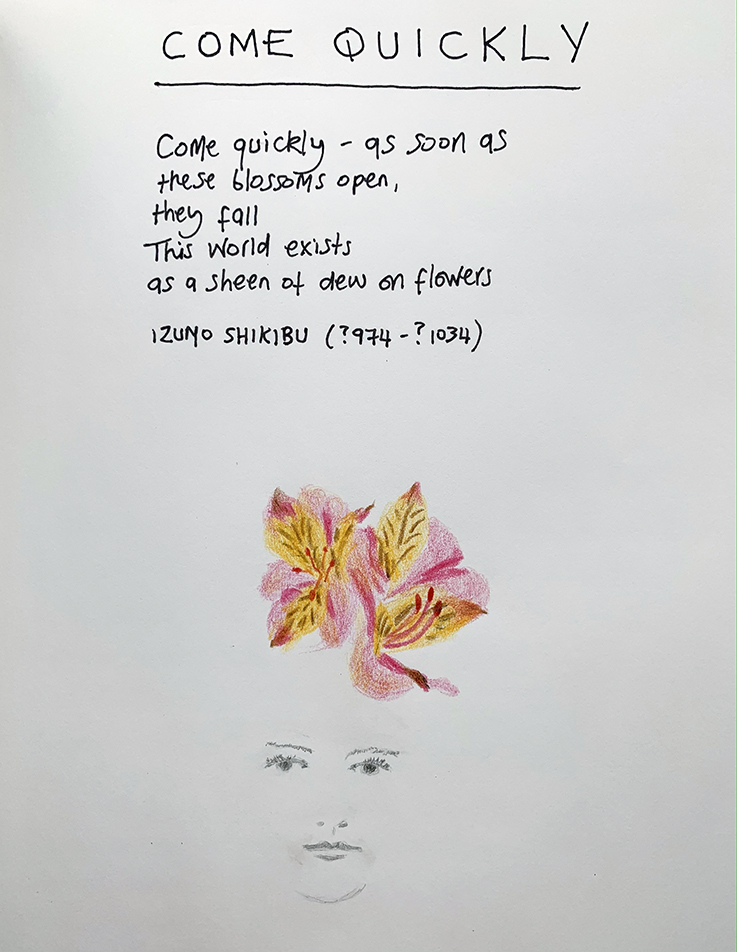 COME QUICKLY
Come quickly - as soon as
these blossoms open,
they fall
This world exists
as a sheen of dew on flowers
IZUMO SHIKIBU (?974 - ?1034)